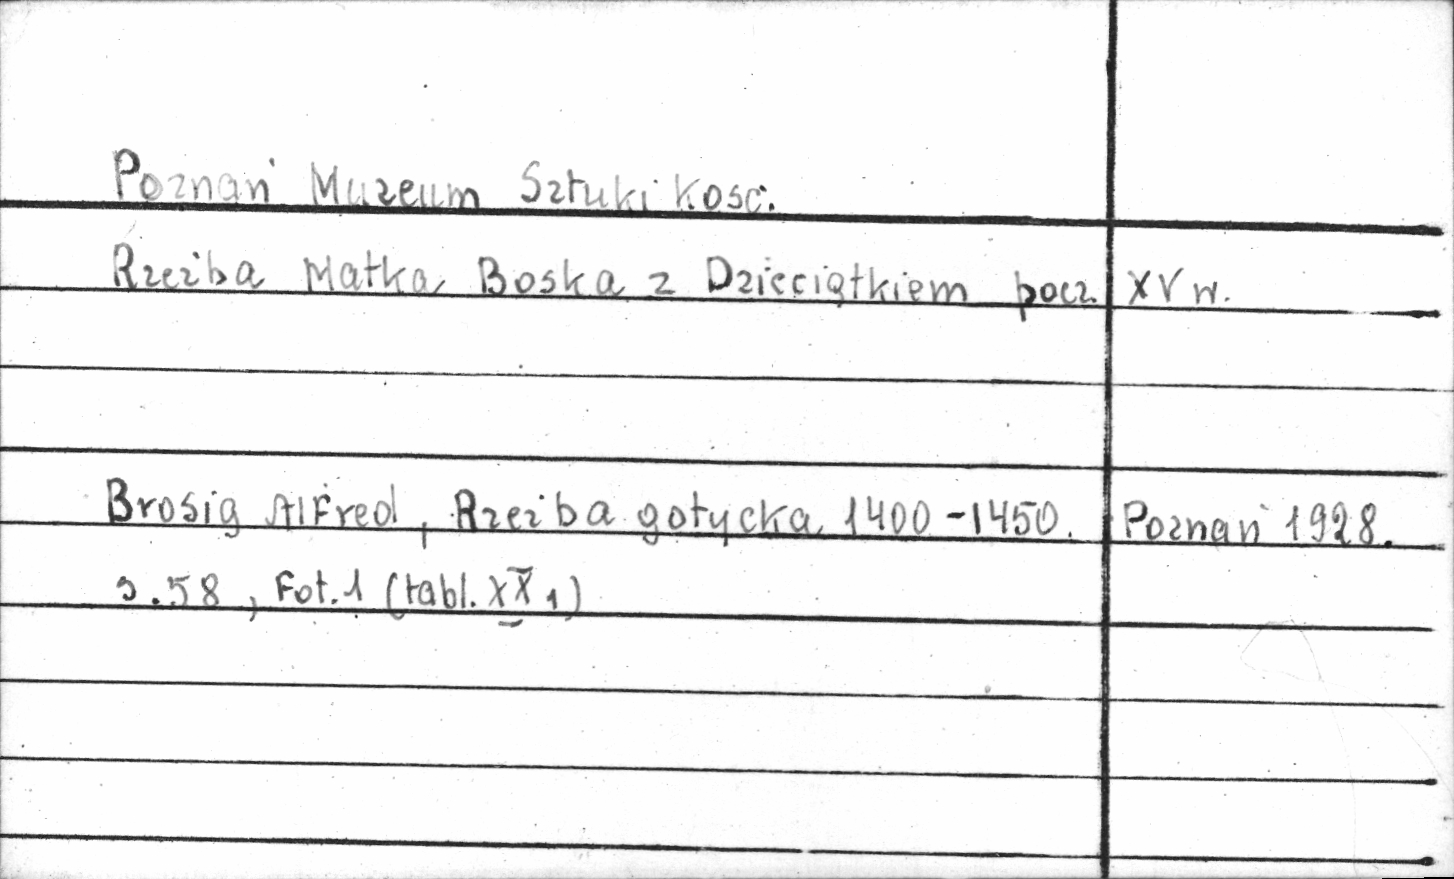 Poznań Muzeum Sztuki Kość.
Rzeźba Matka Boska z Dzieciątkiem pocz. XV w.
Brosig Alfred, Rzeźba gotycka 1400-1450. Poznań 1928.
s. 58, Fot. 1 (tabl. XX 1)